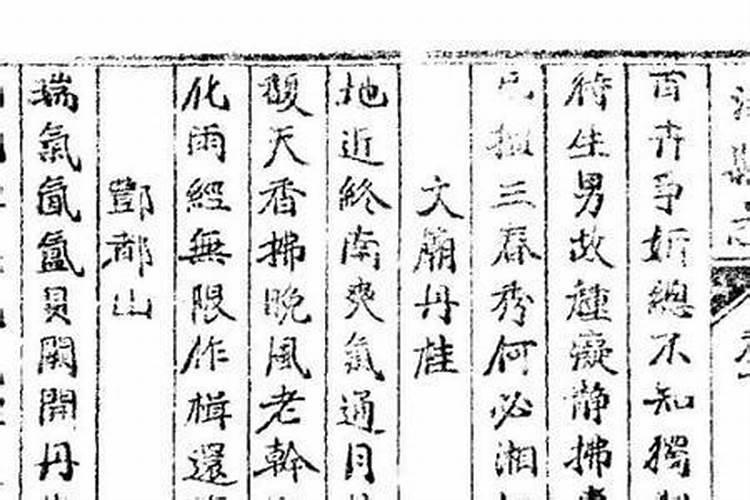 百卉爭妍總不知獨
符生男故種癡靜拂
三春秀何必湘
文廟丹桂
地近終南爽氣通月
馥天香拂晚風老幹
化雨經無限作楫還
酆都山
瑞氣氤氳貝闕開丹